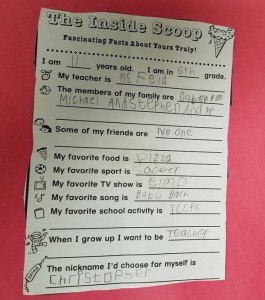 The Inside Scoop
Fascinating Facts About Yours Truly!
I am 11 years old. I am in 6th grade.
My teacher is Ms. Feld
The members of my family are
Michael And Stephen And me
Some of my friends are No one
My favorite food is Pizza
My favorite sport is soccer
My favorite TV show is Elmo
My favorite song is Baby Bach
My favorite school activity is
When I grow up I want to be Teacher
The nickname I'd choose for myself is
Christopher